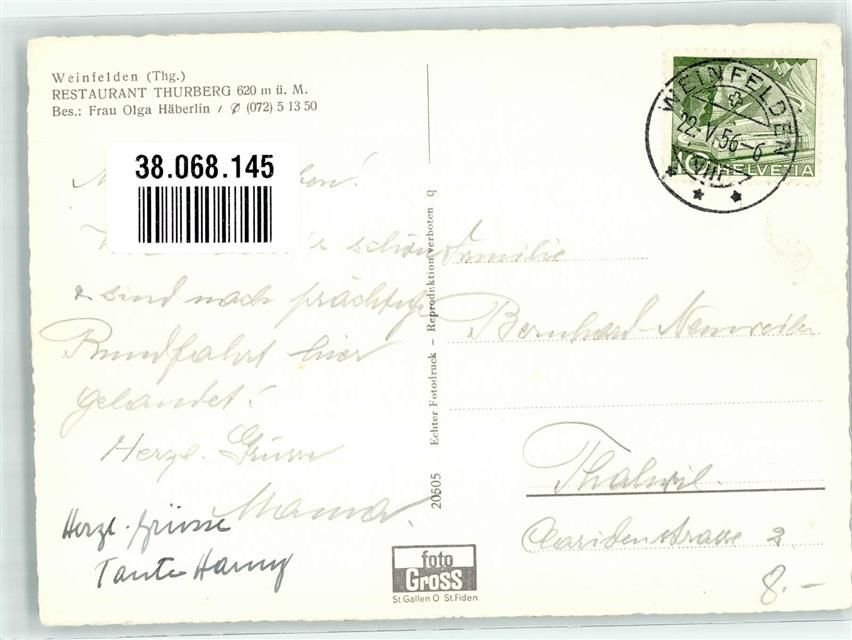 Weinfelden (Thg.)
RESTAURANT THURBERG 620 m ü. M.
Bes.: Frau Olga Häberlin / ✆ (072) 5 13 50
38.068.145
schön
& sind nach prächtiger
Rundfahrt hier
gelandet!
Herzl. Grüsse
Mama.
Herzl. Grüsse
Tante Hanny
20505 Echter Fotodruck - Reproduktion verboten q
foto
Gross
St.Gallen O St.Fiden
WEINFELDEN
22.V.56-6
10 HELVETIA
Familie
Bernhard
Thalwil.
Claridenstrasse 2
8.-